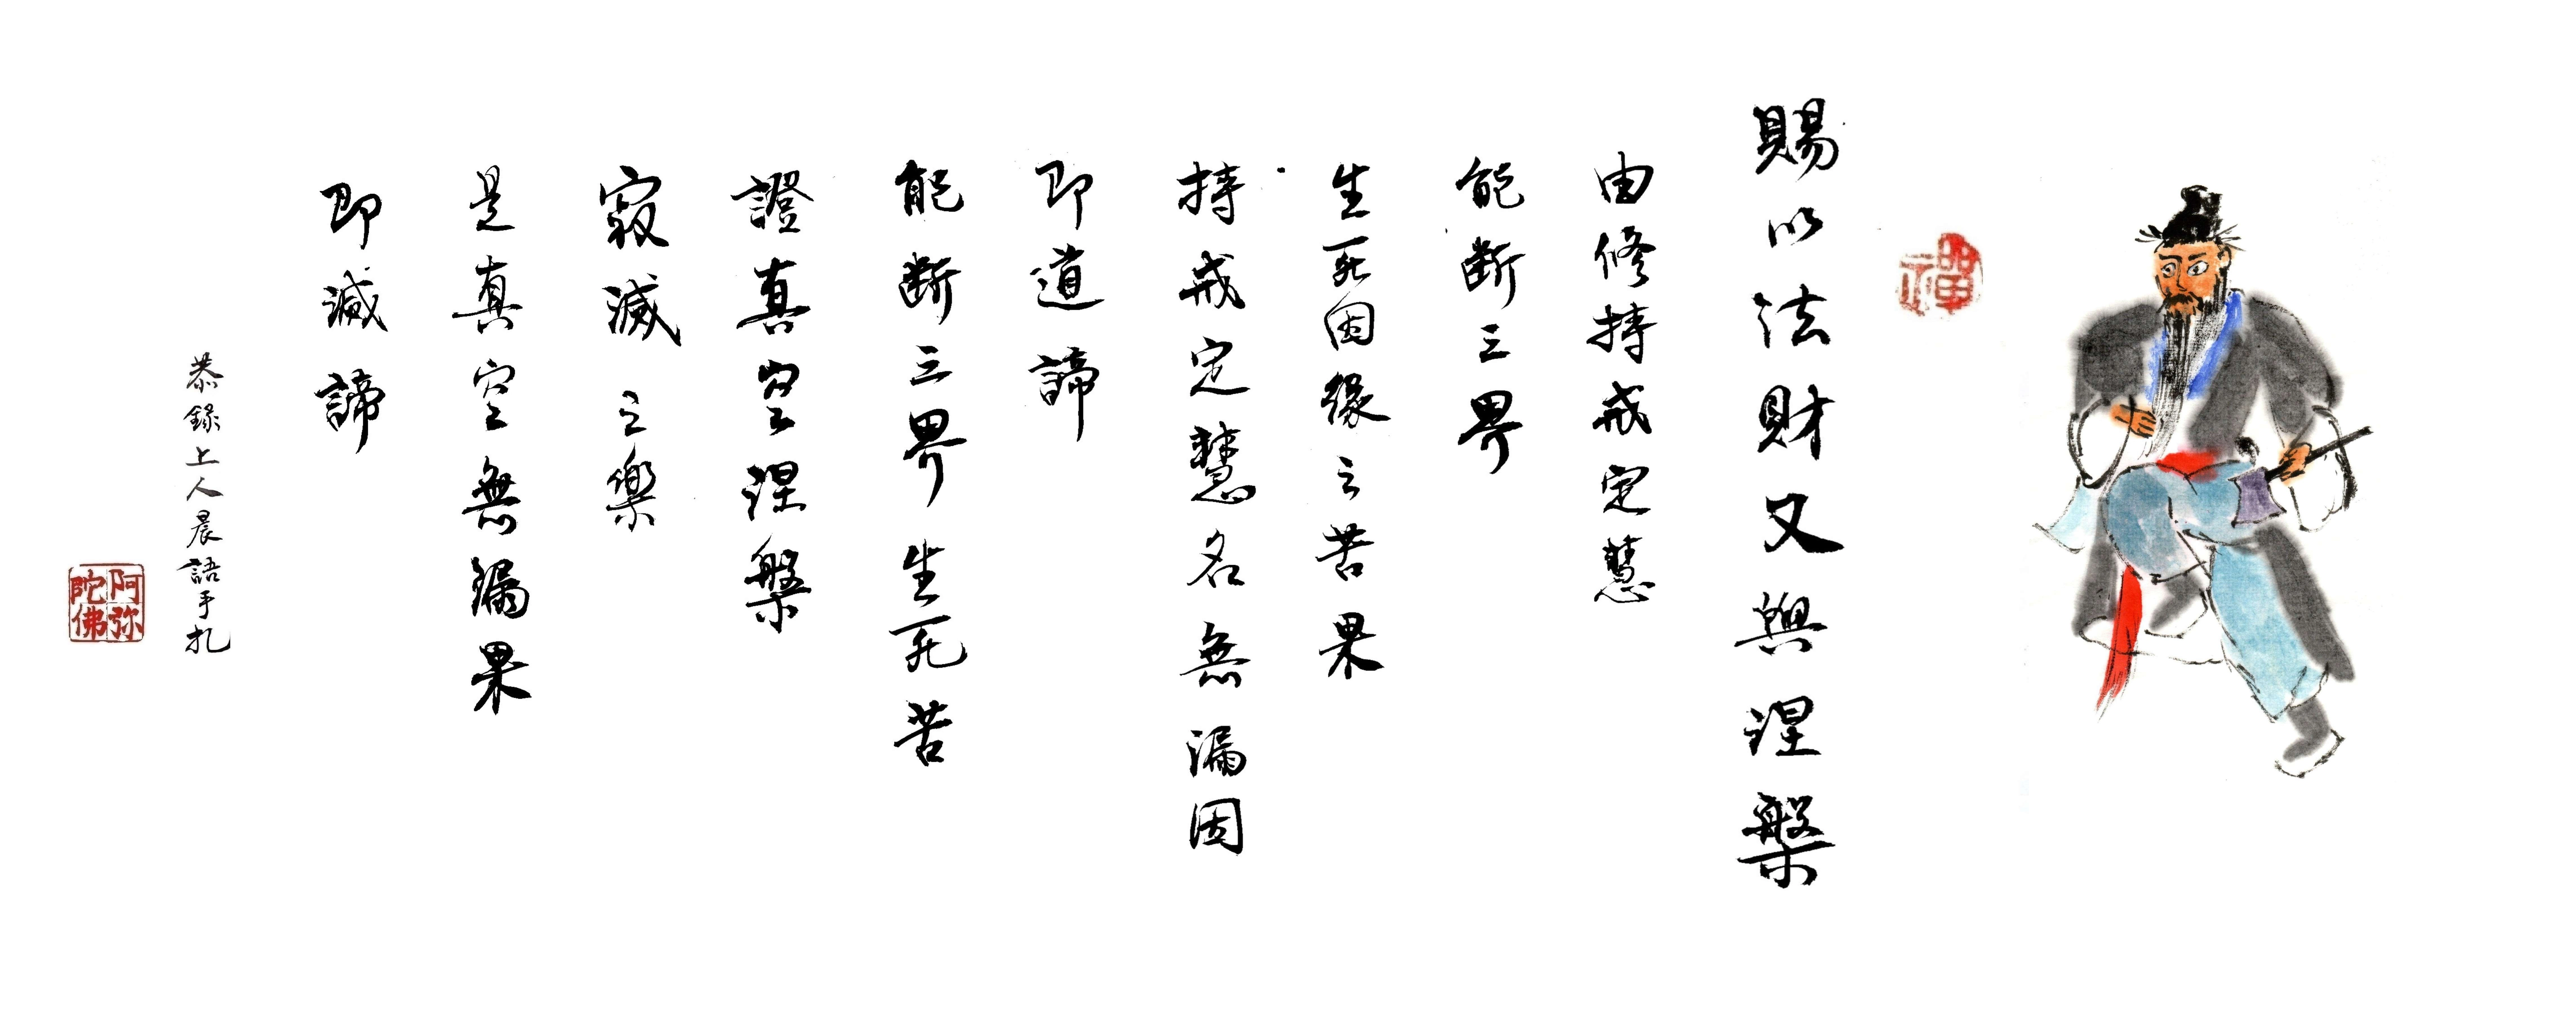 禪
賜以法財又與涅槃
由修持戒定慧
能斷三界
生死因緣之苦果
持戒定慧名無漏因
即道諦
能斷三界生死苦
證真空涅槃
寂滅之樂
是真空無漏果
即滅諦
恭錄上人晨語手札
阿弥陀佛